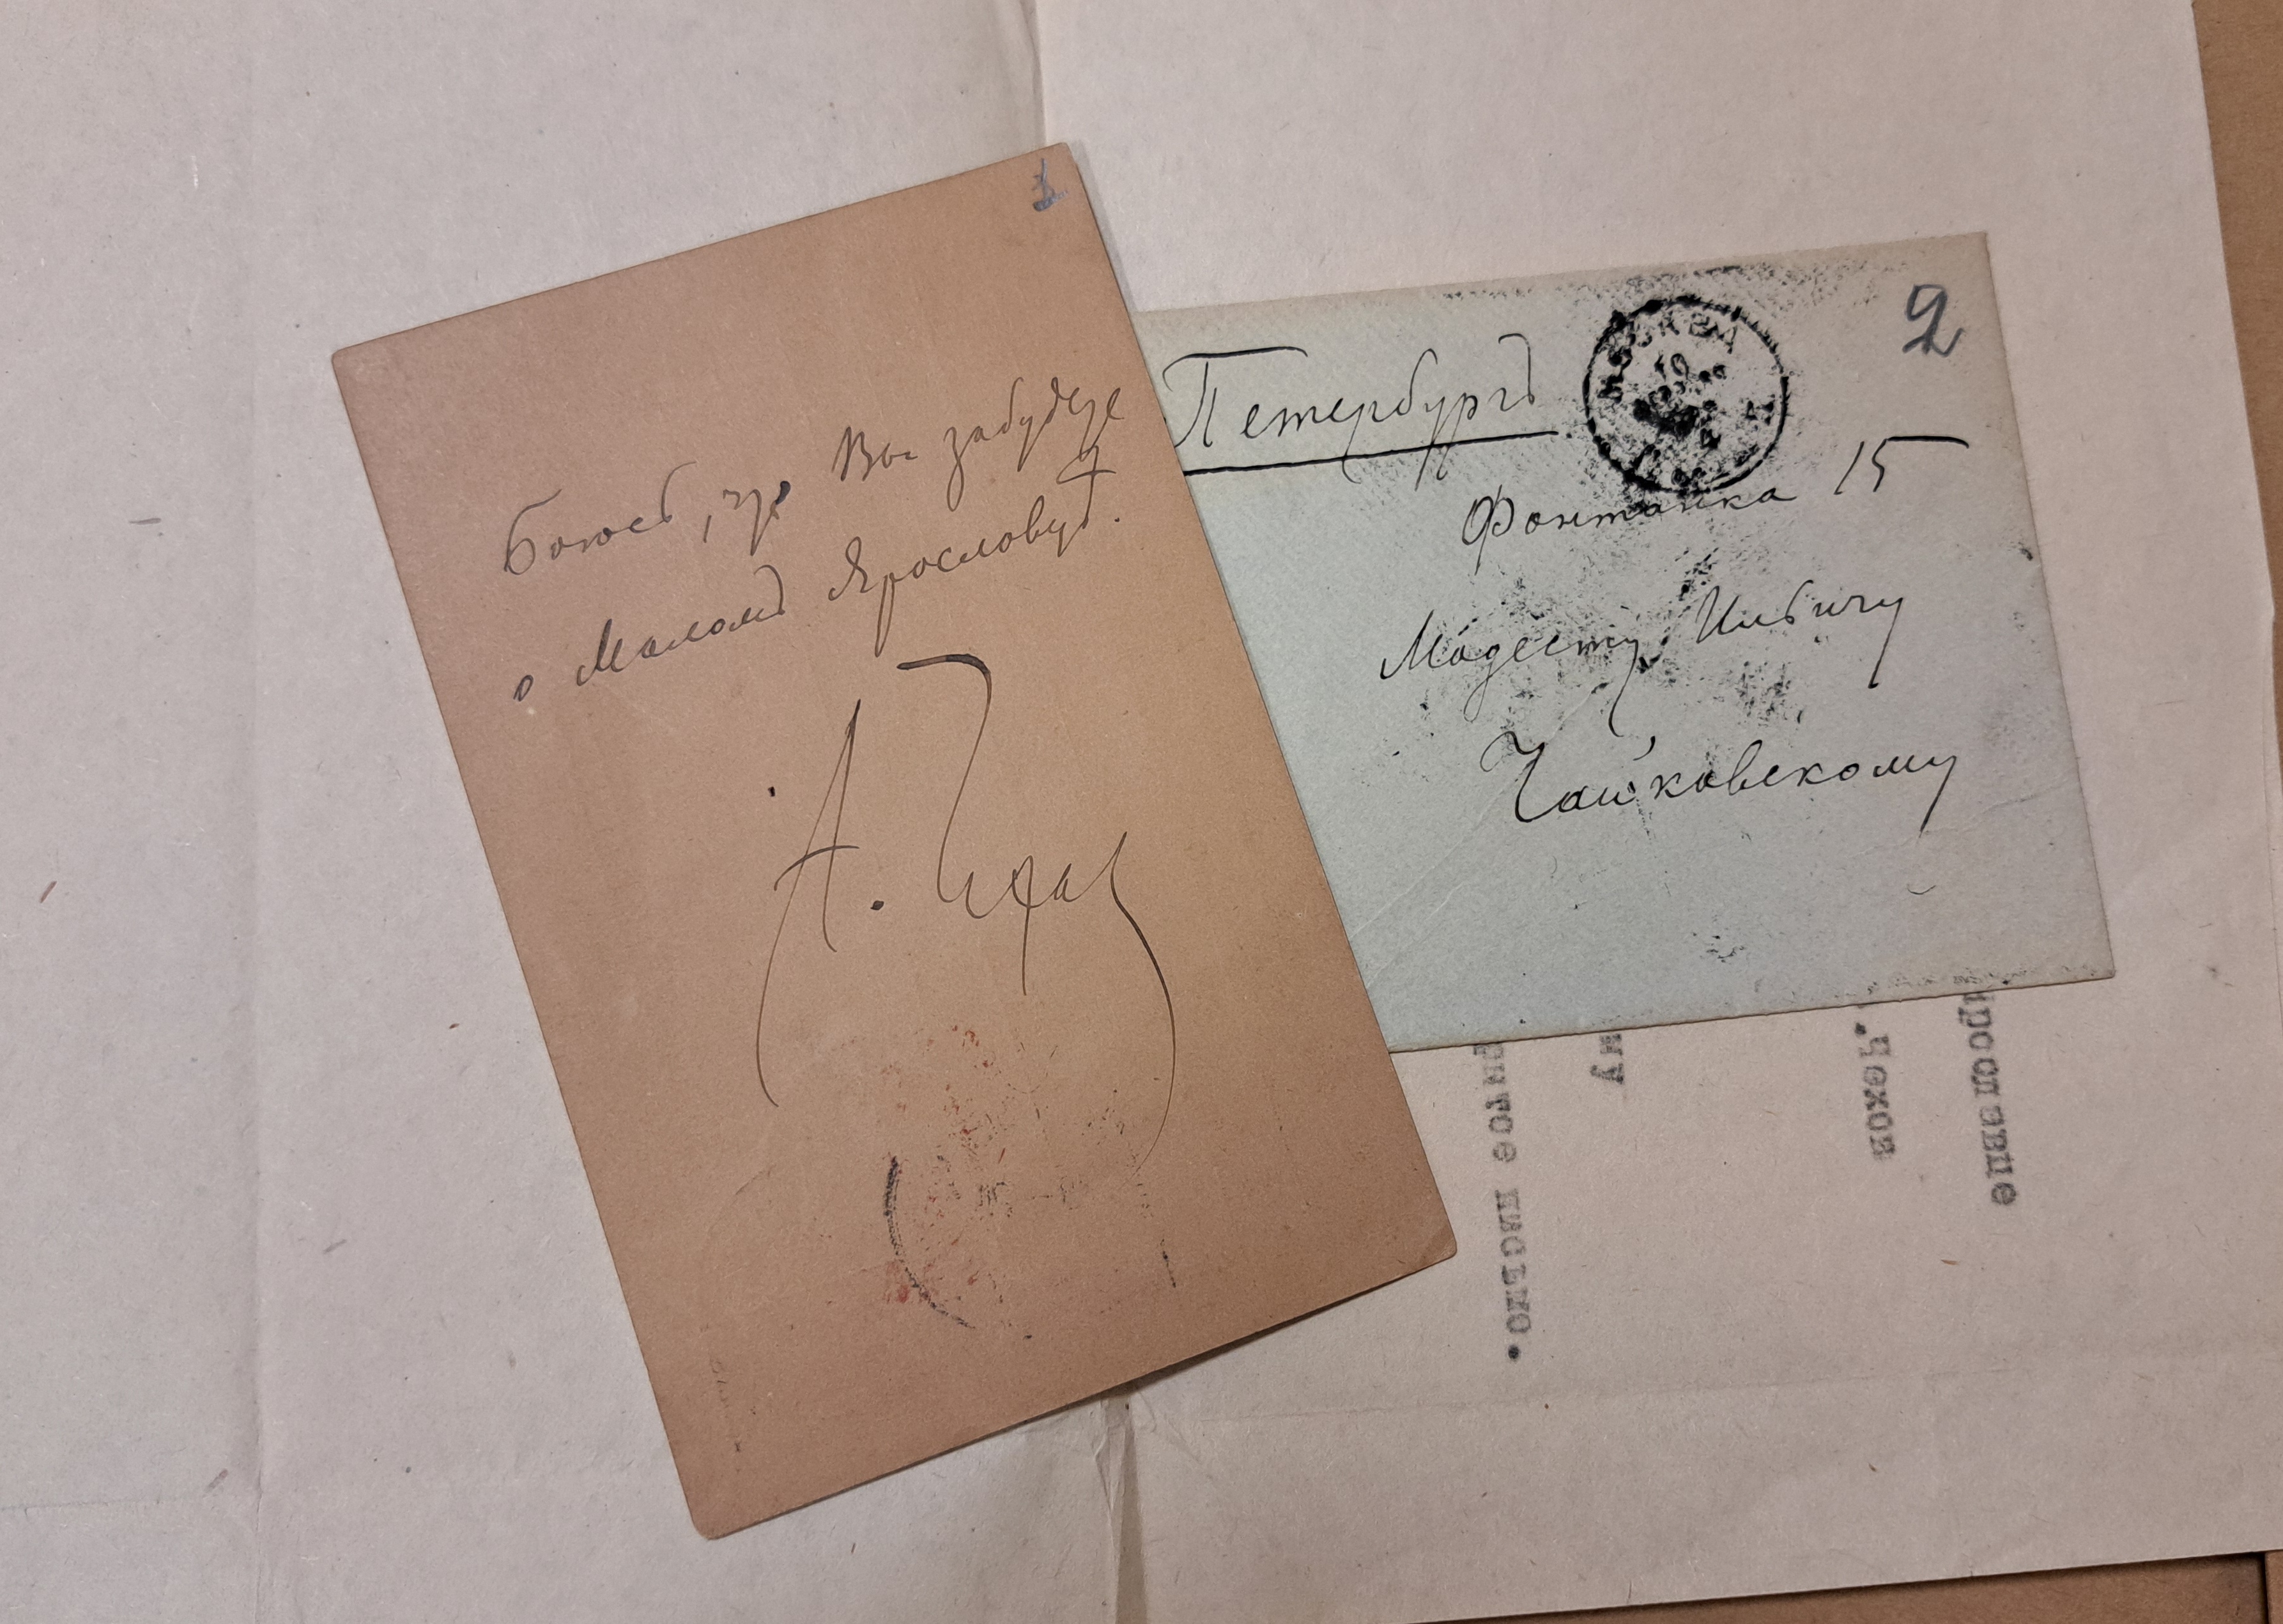 1
Боюсь, что Вы забудете
о Маломъ Ярославцѣ.
А. Чехов
2
Петербургъ
МОСКВА
19
4
Фонтанка 15
Модесту Ильичу
Чайковскому
Ярославце
.Чехов
письмо.